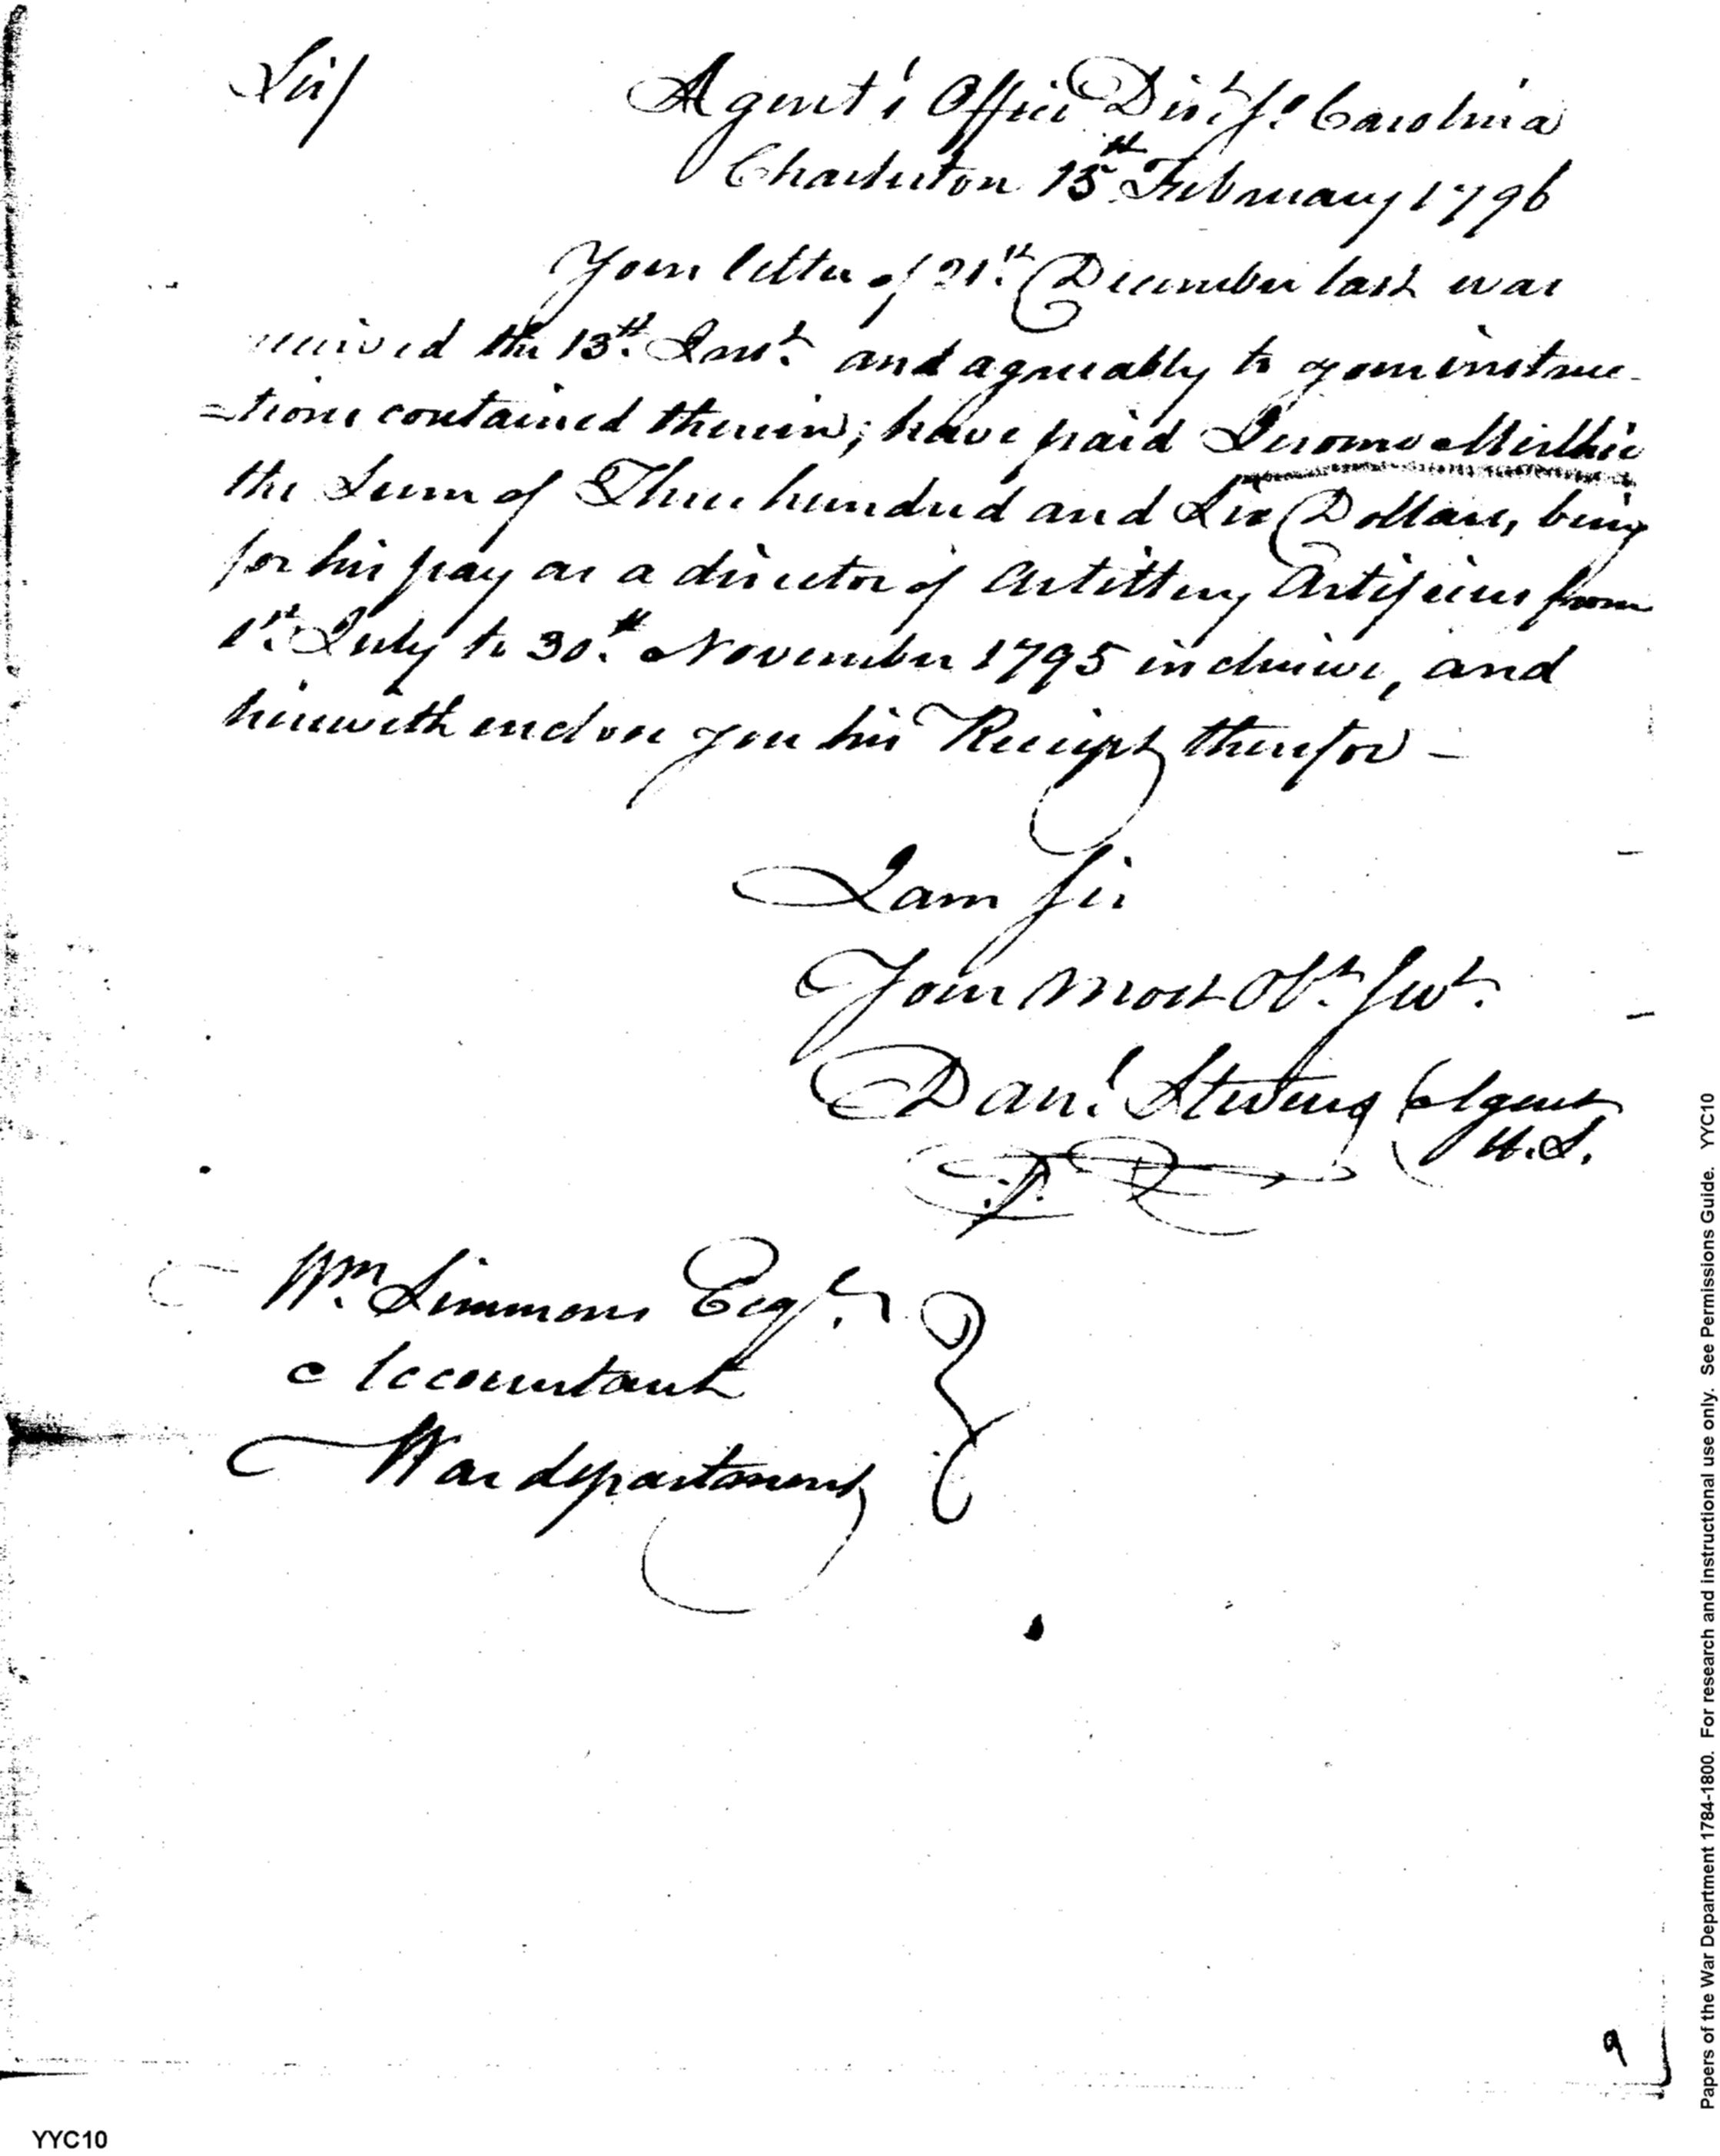 Sir/
Agent's Office Dist. So. Carolina
Charleston 15th February 1796
Your letter of 21st December last was
received the 13th Inst. and agreeably to your instruc-
=tions contained therein; have paid Jerome
the Sum of Three hundred and Six Dollars, being
for his pay as a director of Artillery Artificers from
1st July to 30th November 1795 inclusive, and
herewith enclose you his Receipt therefor —
I am Sir
Your most Obt. Servt.
Danl. Stevens Agent
U.S.
Wm. Simmons Esqr.
Accountant
War department
9
YYC10
Papers of the War Department 1784-1800. For research and instructional use only. See Permissions Guide. YYC10